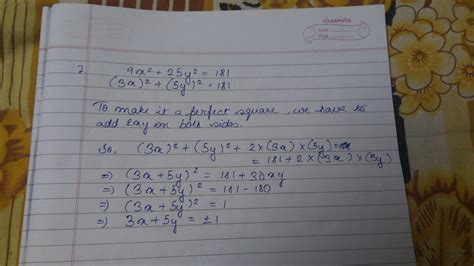 classmate
Date
Page
2 9x² + 25y² = 181
(3x)² + (5y)² = 181
To make it a perfect square, we have to
add 2xy on both sides.
So, (3x)² + (5y)² + 2×(3x)×(5y)
= 181 + 2 × (3x) × (5y)
⇒ (3x + 5y)² = 181 + 30xy
⇒ (3x + 5y)² = 181 - 180
⇒ (3x + 5y)² = 1
⇒ 3x + 5y = ±1